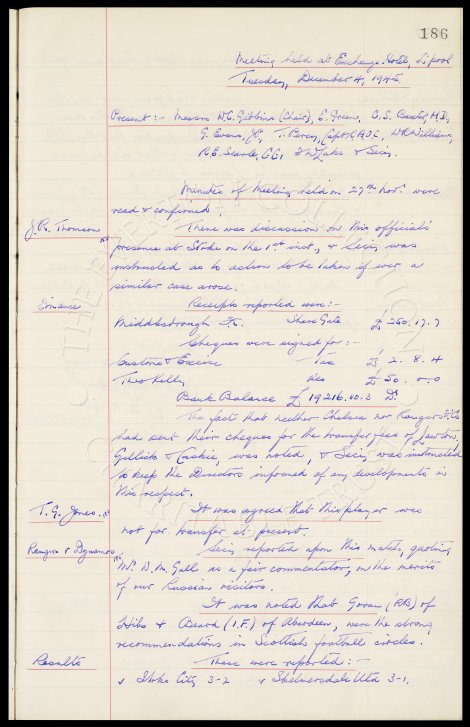 186
Meeting held at Exchange Hotel, L'pool
Tuesday, December 4, 1945
Present :- Messrs W.C. Gibbins (Chair), E. Green, C.S. Baxter, M.D.,
G. Evans, J.P., T. Percy, Capt. R.A.O.C., W.R. Williams,
R.E. Searle, C.C., & Secy.
Minutes of Meeting held on 27th Novr. were
read & confirmed.
J.R. Thomson There was discussion on this official's
presence at Stoke on the 1st inst., & Secy. was
instructed as to action to be taken if ever a
similar case arose.
Finance Receipts reported were :-
Middlesbrough Fc. Share Gate £250.17.7
Cheques were signed for :-
Customs & Excise Tax £2.8.4
Theo Kelly £50.0.0
Bank Balance £19216.10.3 Dr.
The fact that neither Chelsea nor Rangers
had sent their cheques for the transfer fees of Lawton,
Gillick & Caskie, was noted, & Secy. was instructed
to keep the Directors informed of any developments in
this respect.
T.G. Jones. It was agreed that this player was
not for transfer at present.
Rangers v Dynamos Secy. reported upon this match, quoting
Mr. D. M. Gall as a fair commentator, on the merits
of our Russian visitors.
It was noted that Govan (RB) of
Hibs & Beard (I.F.) of Aberdeen, were the strong
recommendations in Scottish football circles.
Results These were reported :-
v Stoke City 3-2 v Skelmersdale Utd 3-1.
THE EVERTON COLLECTION
CHARITABLE TRUST